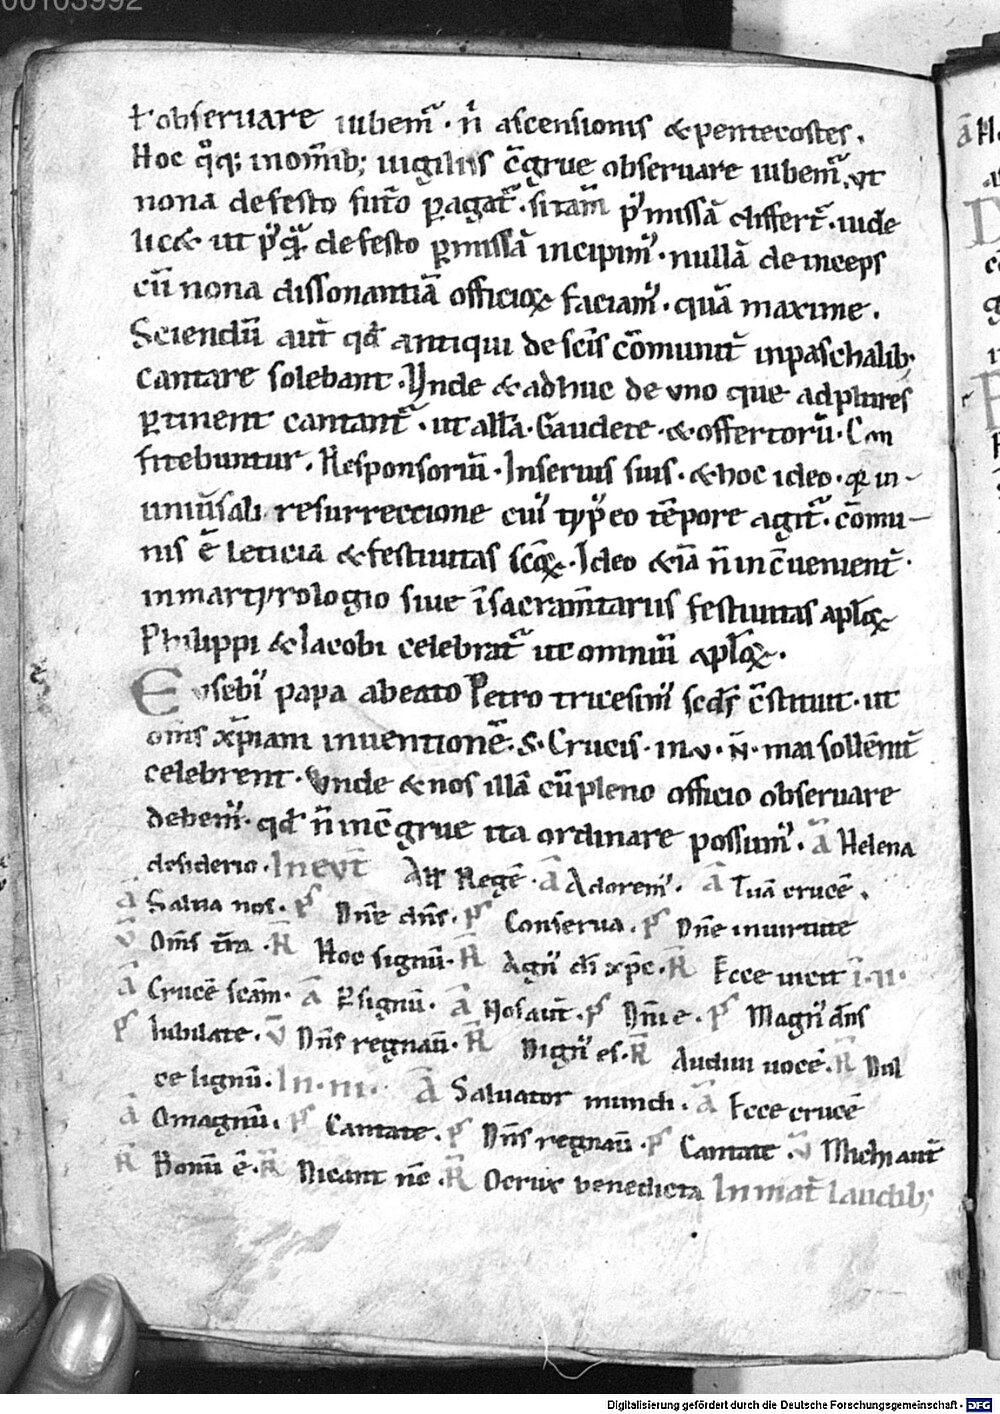 00103992
ł obseruare iubem᷑ · n̄ ascensionis & pentecostes .
Hoc q̊q; inom̄ib; uigiliis ↄ̄grue obseruare iubem᷑ . ut
nona de festo futo̅ ꝑagat᷑ · si tam̄ p̾missā differt᷑ · uide
lic& ut p᷑q̄ de festo ꝑmissā incipim᷑ · nullā deinceps
cū nona dissonantiā officioꝝ faciam᷑ · quā maxime .
Sciendū aut̄ qđ antiqui de sc̄is cōmunit᷑ inpaschalib;
cantare solebant . Vnde & adhuc de uno que ad plures
ꝑtinent cantant᷑ · ut all̄a · Gaudete · & offertoriū · Con
fitebuntur . Responsoriū · Inseruis suis · & hoc ideo · qr̄ in
uniūsali resurreccione cui᷑ typ̄ eo tēpore agit᷑ · cōmu–
nis ē leticia & festiuitas sc̄oꝝ · Ideo & iā n̄ inc̄uenient᷑ ·
in martyrologio siue ī sacram̄tariis festiuitas apl̄oꝝ
Philippi & Iacobi celebrat᷑ ut omniū apl̄oꝝ .
Eusebi᷑ papa abeato Petro tricesim᷑ scd̄s c̄stituit · ut
om̄s xp̄iani inuentionē · S · Crucis · in · v · N̄ · mai sollēnit᷑
celebrent · Vnde & nos illā cū pleno officio obseruare
debem᷑ · qđ n̄ incↄ̄grue ita ordinare possum᷑ . ā Helena
desiderio · In evt̄ Ad̄ Regē · ā Adorem᷑ . ā Tuā crucē .
ā Salua nos . p̄s Dn̄e dn̄s . p̄s Conserua . p̄s Dn̄e in uirtute
v̄ Om̄s t̄ra . R̄ Hoc signū . R̄ Agn᷑ dī xp̄c . R̄ Ecce uicit ī · ii ·
ā Crucē sc̄am . ā P signū . ā Nos aut̄ . p̄s Dn̄i e . p̄s Magn᷑ dn̄s
p̄s Iubilate . v̄ Dn̄s regnau̅ . R̄ Dign᷑ es . R̄ Audiui uocē . R̄ Dul
ce lignū . In · iii · ā Saluator mundi . ā Ecce crucē
ā O magnū . p̄s Cantate . p̄s Dn̄s regnau̅ . p̄s Cantate v̄ Michi aut̄
R̄ Bonū ē . R̄ Dicant nc̄ . R̄ O crux benedicta In mat̄ laudib;
Digitalisierung gefördert durch die Deutsche Forschungsgemeinschaft - DFG